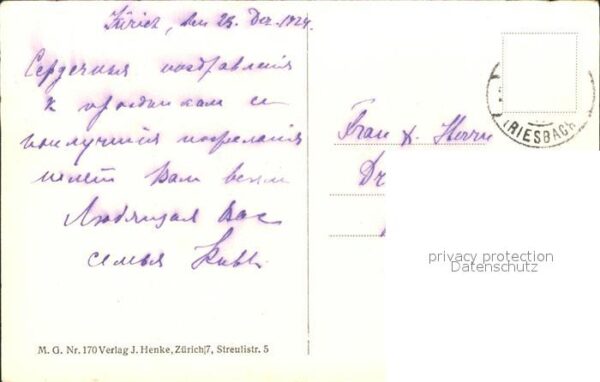 Zürich, den 23. Dez. 1924.
Сердечныя поздравленія
к праздникам и
наилучшія пожеланія
шлет Вам всем
Любящая Вас
семья
Frau & Herrn
Dr
RIESBACH
privacy protection
Datenschutz
M. G. Nr. 170 Verlag J. Henke, Zürich/7, Streulistr. 5